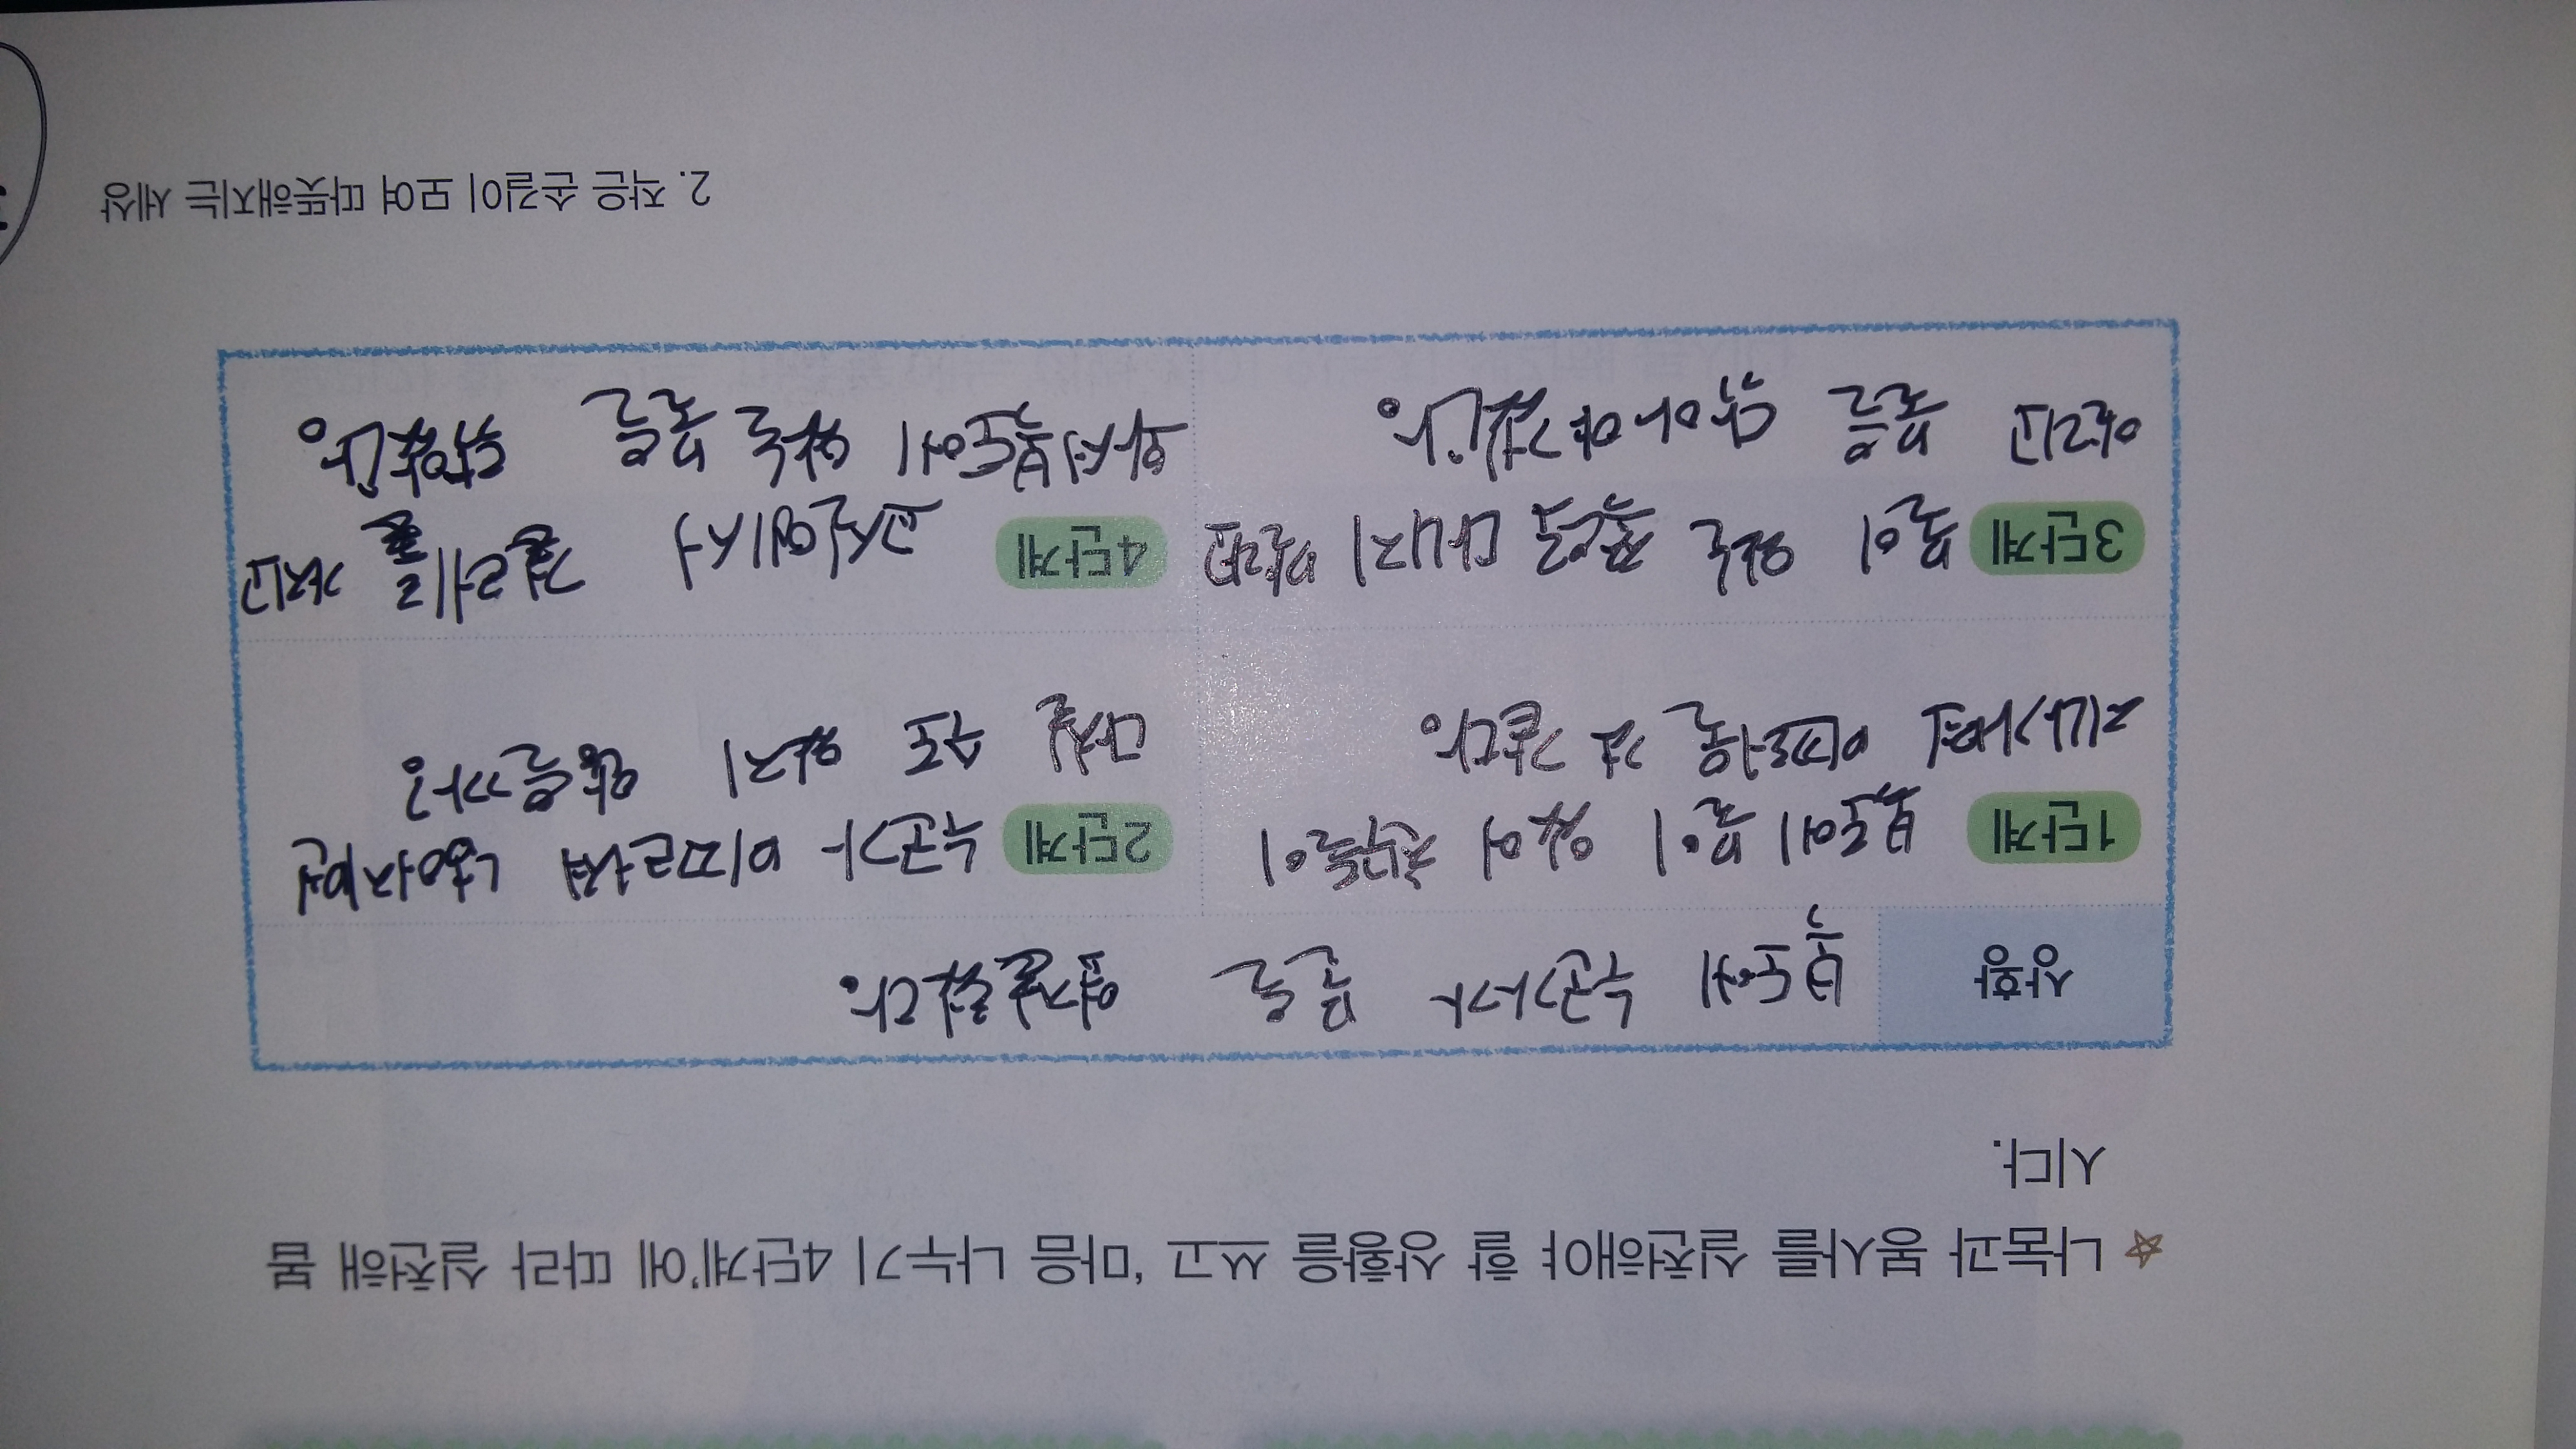 ☆ 나눔과 봉사를 실천해야 할 상황을 쓰고, '마음 나누기 4단계'에 따라 실천해 봅
시다.
상황
복도에 누군가 물을
1단계
복도에 물이 있어 친구들이
지나가면 미끄러질 것 같다.
2단계
누군가 미끄러져 넘어지면
다칠 수도 있지 않을까?
3단계
물이 있는 곳을 대걸레
물을 닦아야겠다.
4단계
교실에서 걸레를 가져와
복도에 있는 물을 닦았다.
2. 작은 손길이 모여 따뜻해지는 세상